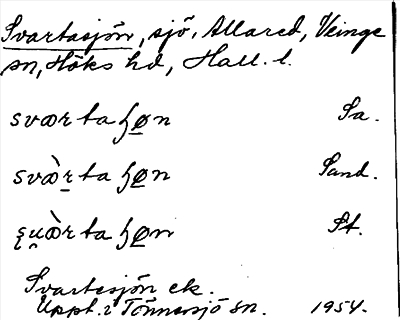 Svartasjön, sjö, Allared, Veinge
sn, Höks hd, Hall. l.
sværta ɧøn Sa.
svæ̀rta ɧøn Sand.
ȿu̯æ̀rta ɧøn St.
Svartesjön ek.
Uppt. i Tönnersjö sn. 1954.